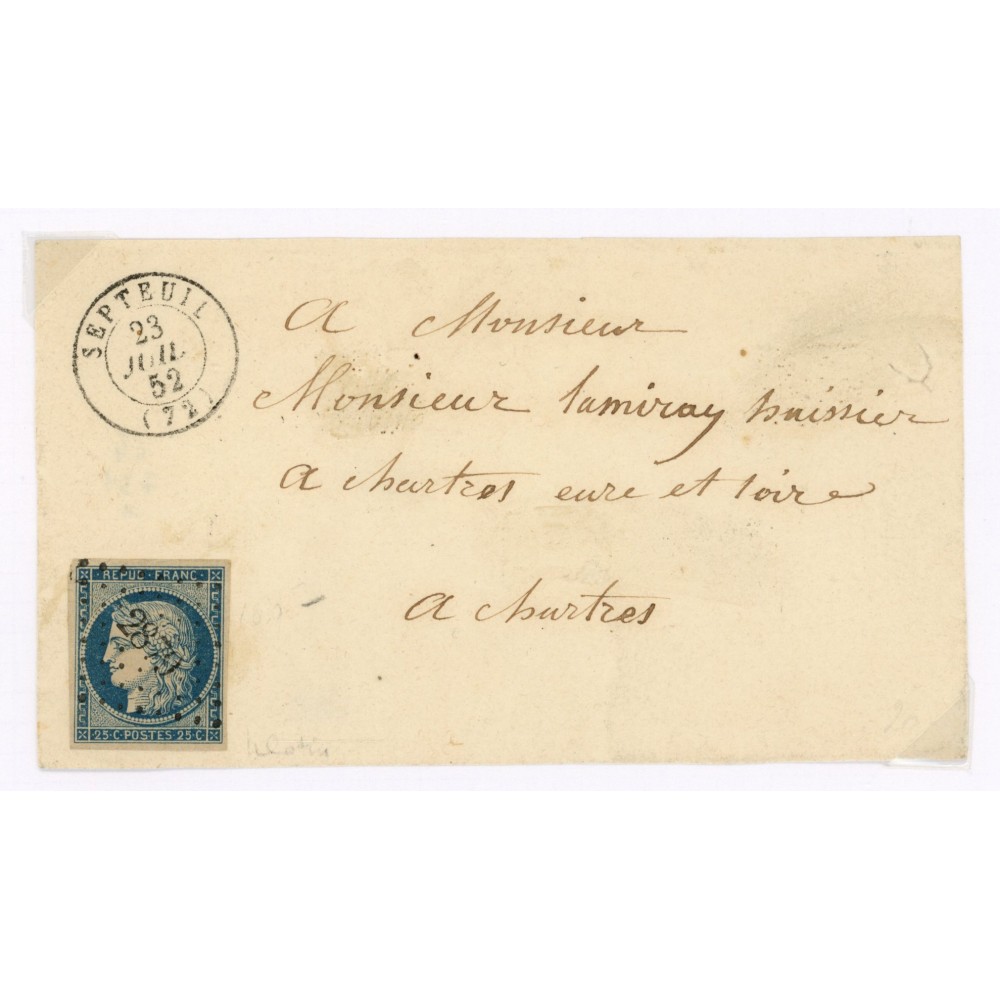 SEPTEUIL
23
JUIL
52
(72)
A Monsieur
Monsieur lamiray huissier
A chartres eure et loire
A chartres
REPUB·FRANC
25·C·POSTES·25·C